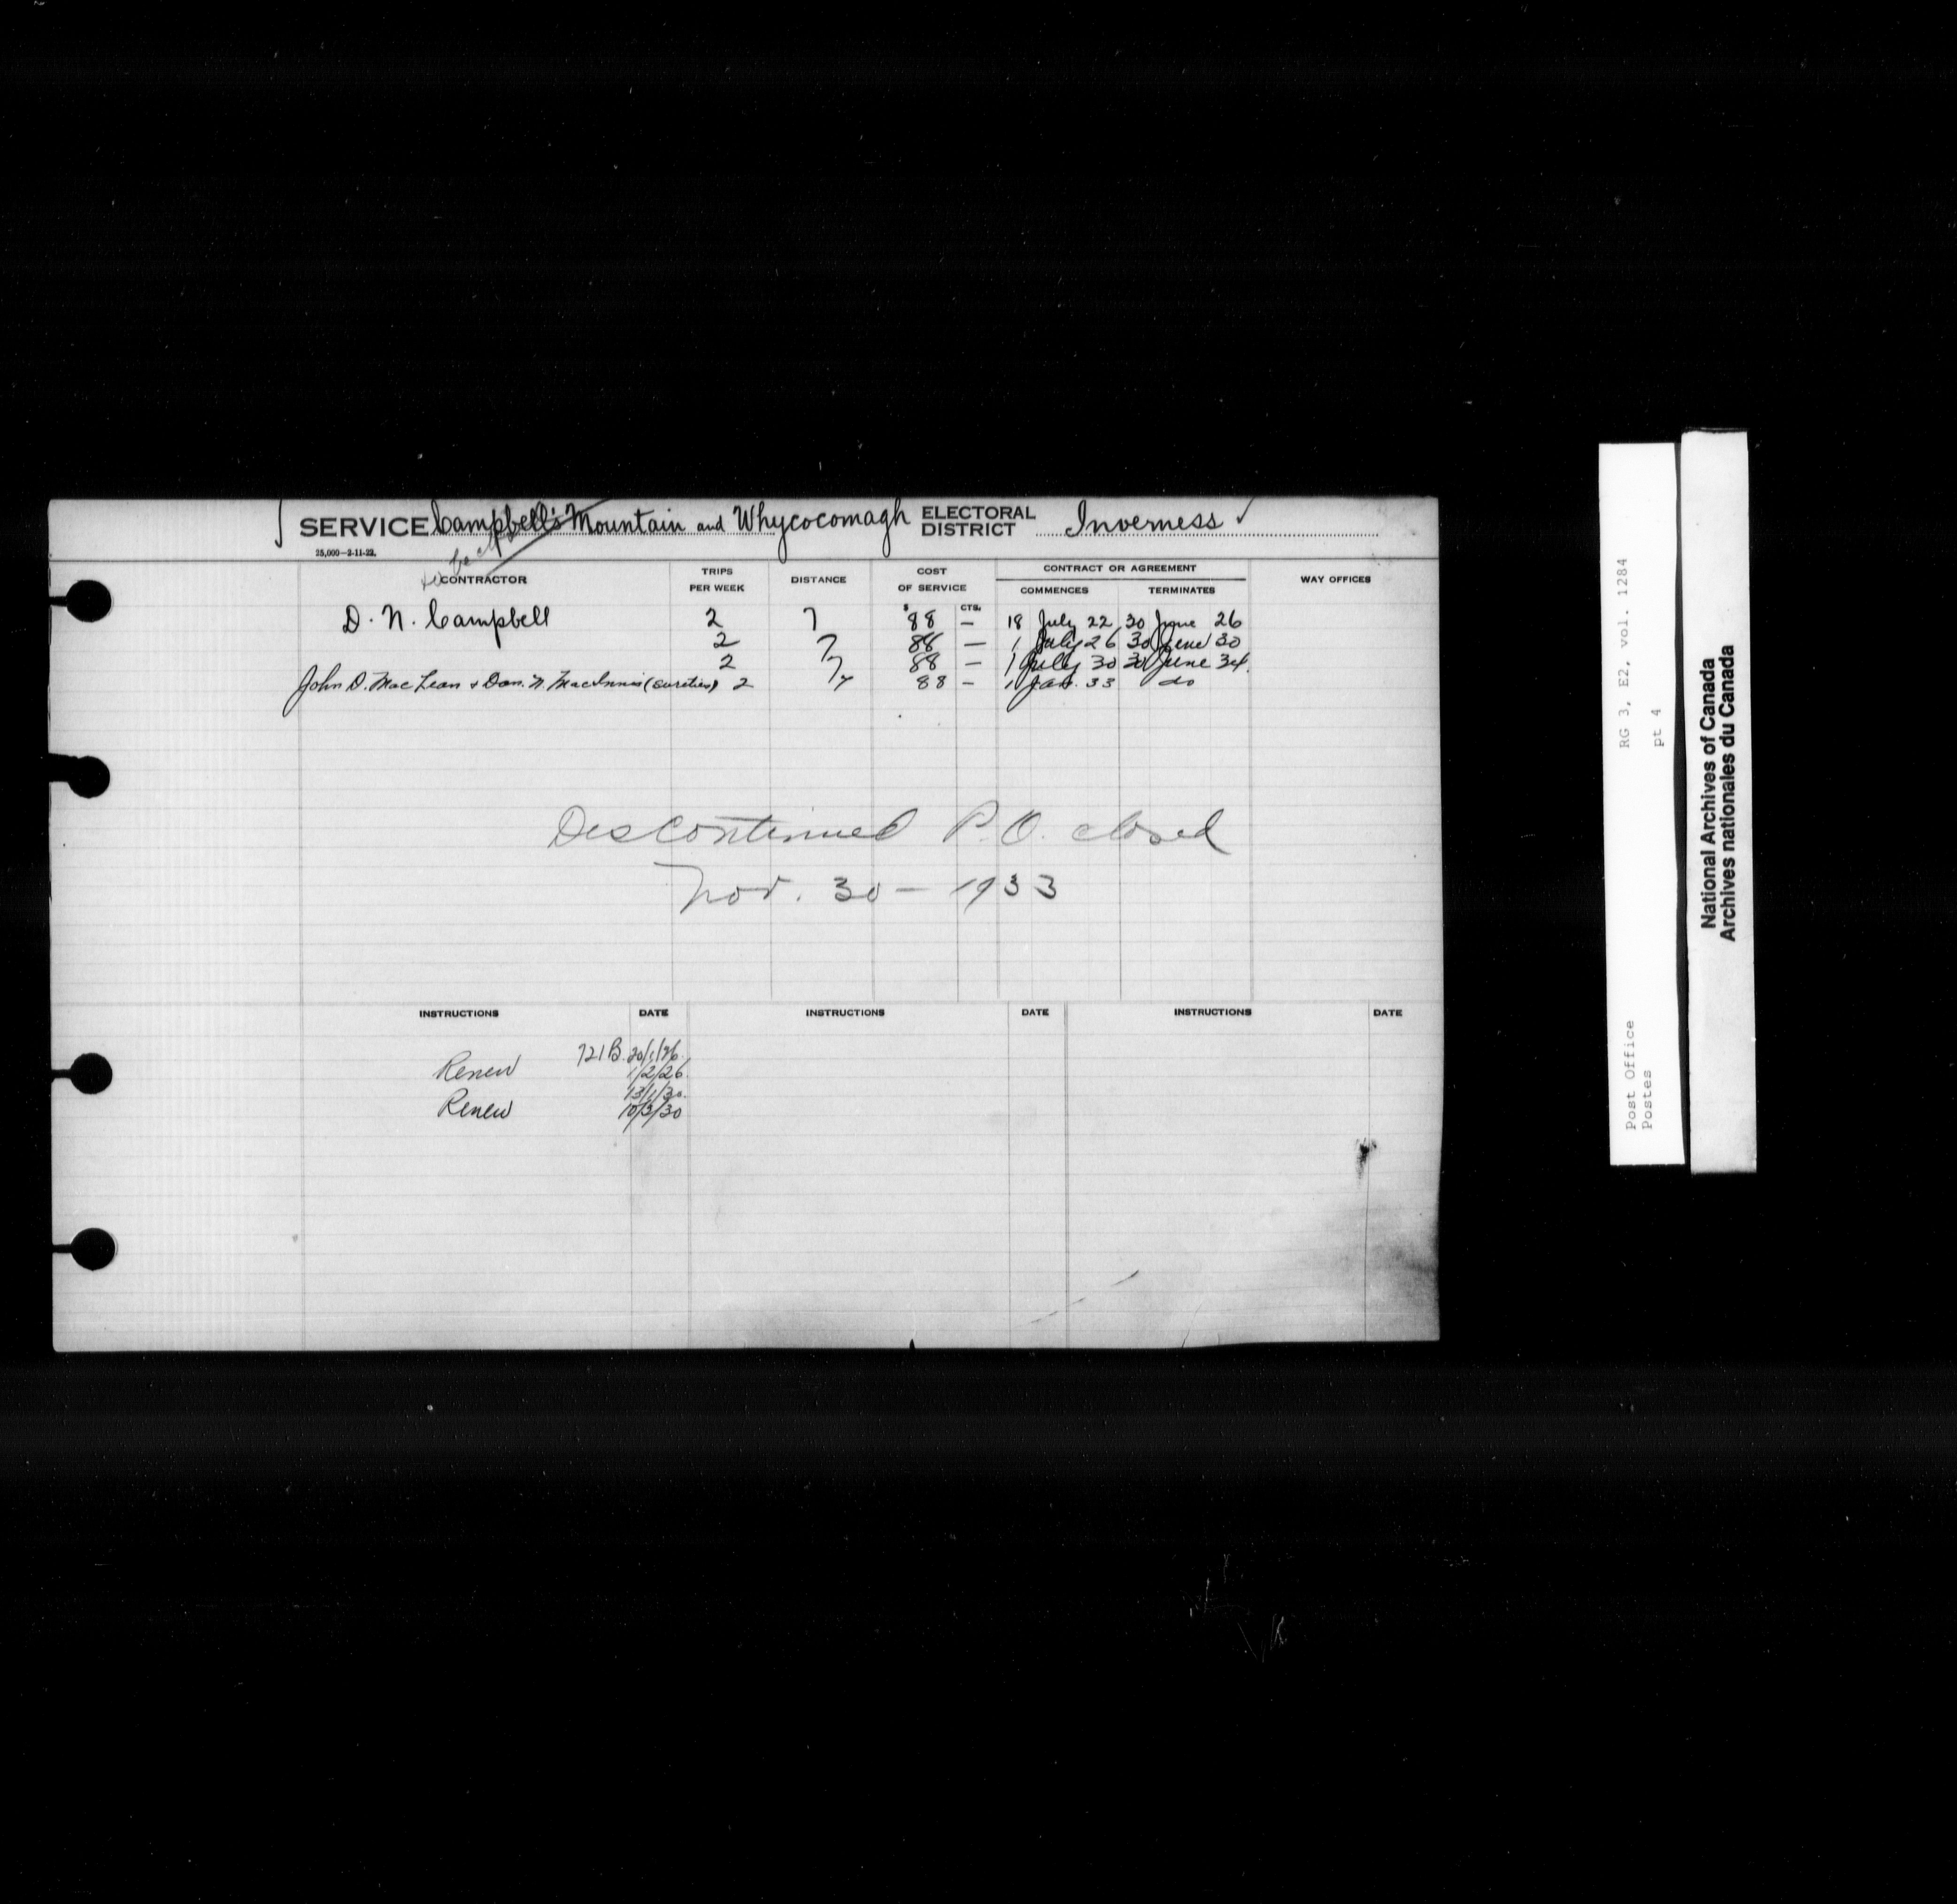 SERVICE Campbell's Mountain and Whycocomagh ELECTORAL DISTRICT Inverness ✓
25,000—2-11-22.
to be
CONTRACTOR TRIPS PER WEEK DISTANCE COST OF SERVICE CONTRACT OR AGREEMENT COMMENCES TERMINATES WAY OFFICES
$ CTS.
D. N. Campbell 2 7 88 — 18 July 22 30 June 26
2 7 88 — 1 July 26 30 June 30
2 7 88 — 1 July 30 30 June 34.
John D. MacLean & Dan. N. MacInnis (sureties) 2 7 88 — 1 Jan. 33 do
Discontinued P.O. closed
Nov. 30 — 1933
INSTRUCTIONS DATE INSTRUCTIONS DATE INSTRUCTIONS DATE
721B. 20/1/26.
Renew 1/2/26.
13/1/30.
Renew 10/3/30
RG 3, E2, vol. 1284
pt 4
Post Office
Postes
National Archives of Canada
Archives nationales du Canada